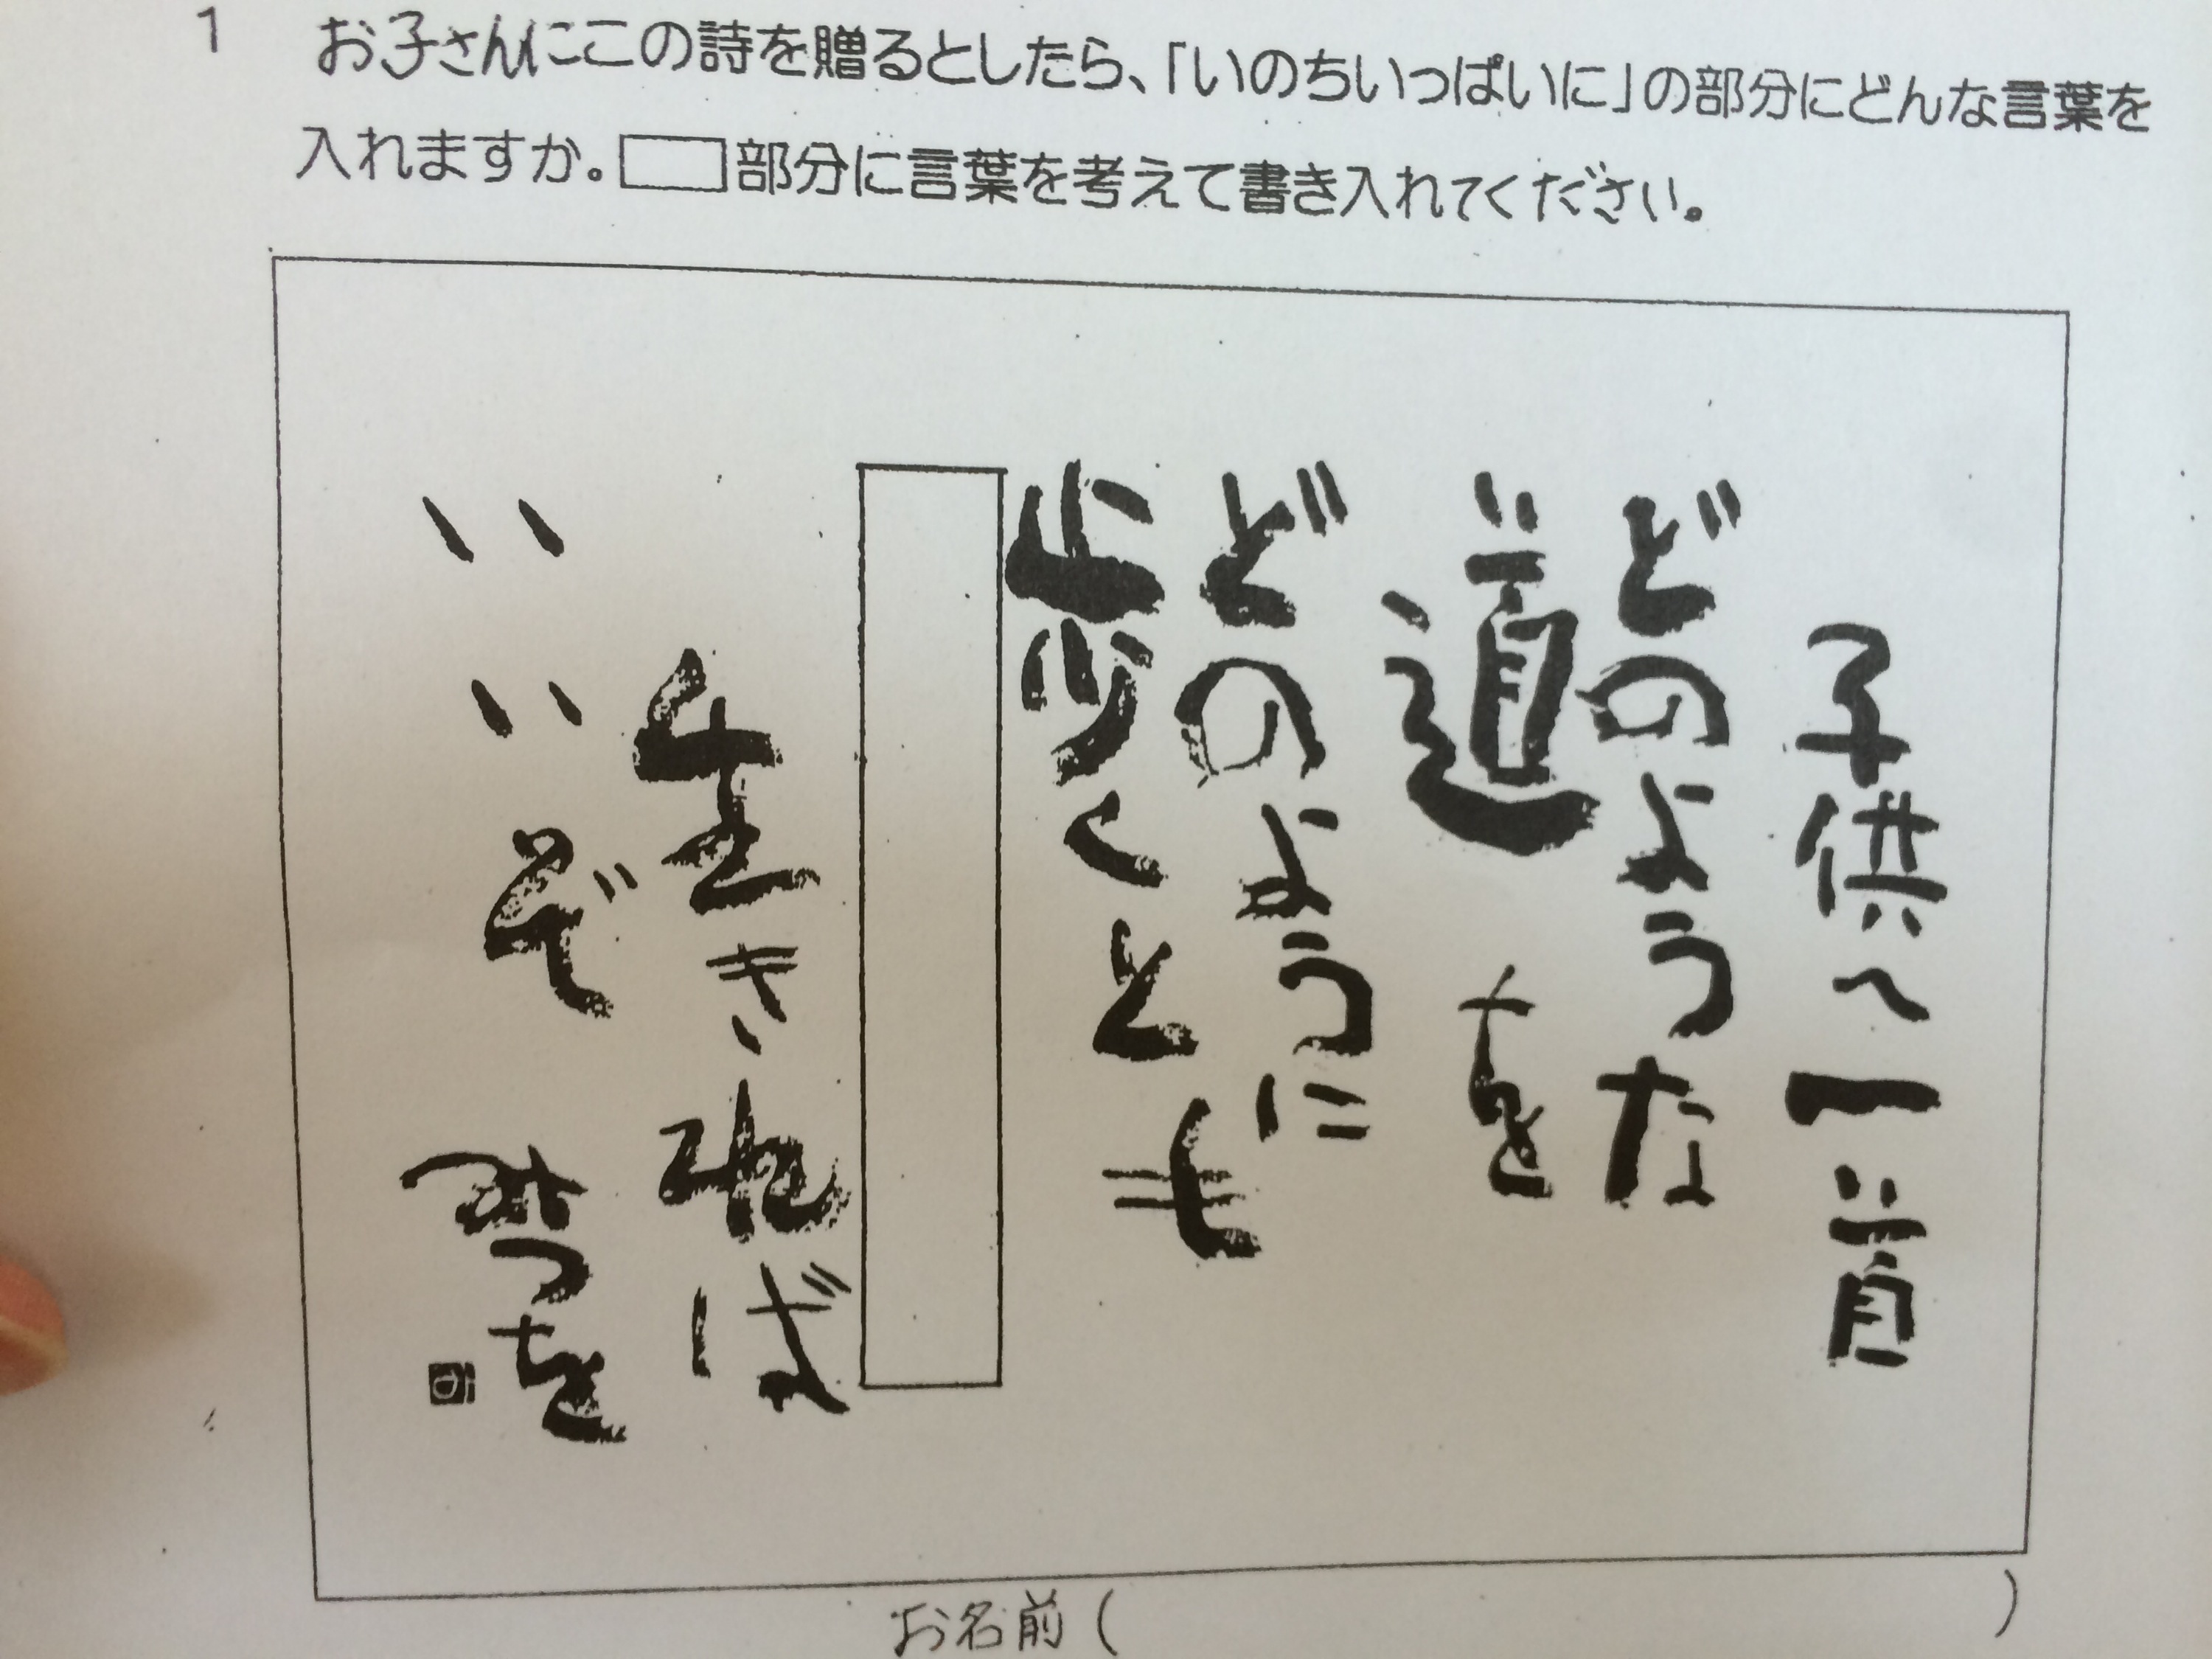 1 お子さんにこの詩を贈るとしたら、「いのちいっぱいに」の部分にどんな言葉を
入れますか。部分に言葉を考えて書き入れてください。
子供へ一首
どのような
道を
どのように
歩くとも
生きれば
いいぞ
みつを
お名前( )